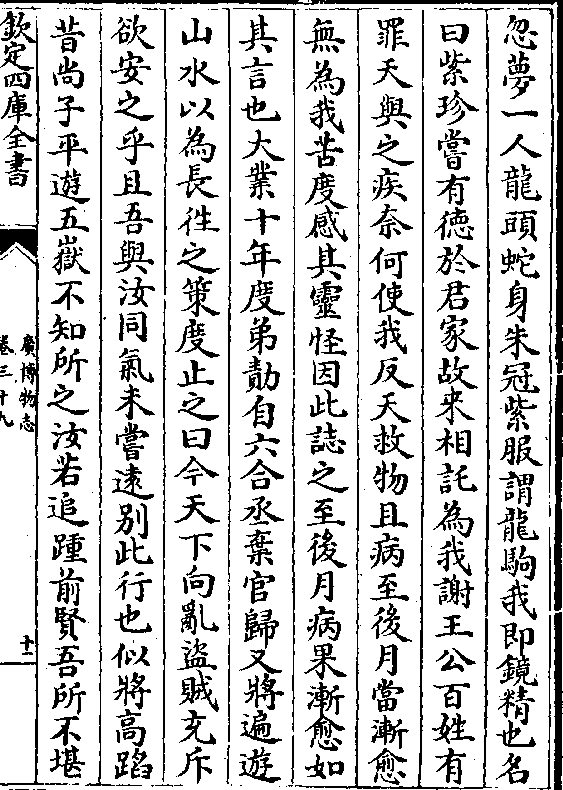 忽夢一人龍頭蛇身朱冠紫服謂龍駒我即鏡精也名
曰紫珍嘗有德於君家故来相託為我謝王公百姓有
罪天與之疾奈何使我反天救物且病至後月當漸愈
無為我苦度感其靈怪因此誌之至後月病果漸愈如
其言也大業十年度弟勣自六合丞棄官歸又將遍遊
山水以為長徃之策度止之曰今天下向亂盜賊充斥
欲安之乎且吾與汝同氣未嘗逺別此行也似將高蹈
昔尚子平遊五嶽不知所之汝若追踵前賢吾所不堪
欽定四庫全書
廣博物志
卷三十九
十一